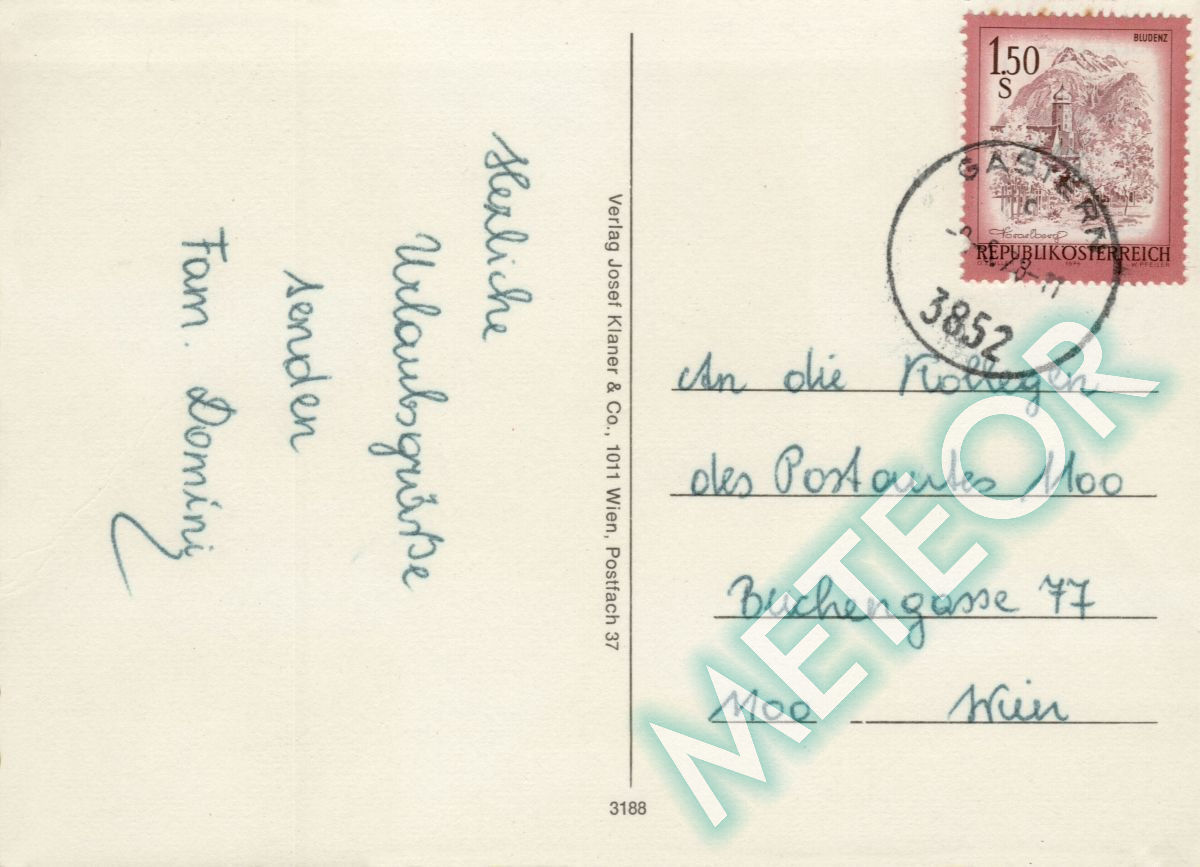 Herzliche
Urlaubsgrüße
senden
Fam. Domini
Verlag Josef Klaner & Co., 1011 Wien, Postfach 37
3188
BLUDENZ
1.50
S
Vorarlberg
REPUBLIK ÖSTERREICH
W. PFEILER
GASTERN
3852
An die Kollegen
des Postamtes 1100
Buchengasse 77
1100 Wien
METEOR